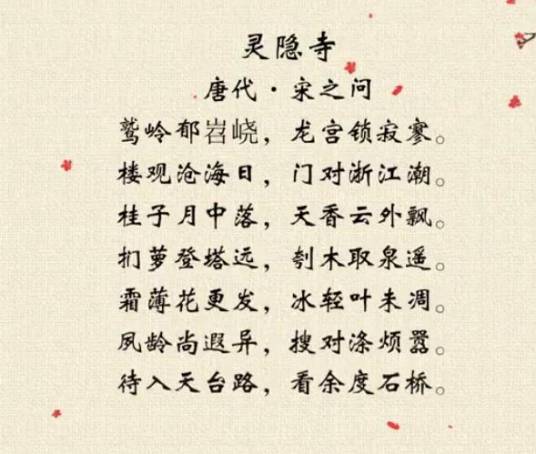 灵隐寺
唐代·宋之问
鹫岭郁岧峣，龙宫锁寂寥。
楼观沧海日，门对浙江潮。
桂子月中落，天香云外飘。
扪萝登塔远，刳木取泉遥。
霜薄花更发，冰轻叶未凋。
夙龄尚遐异，搜对涤烦嚣。
待入天台路，看余度石桥。